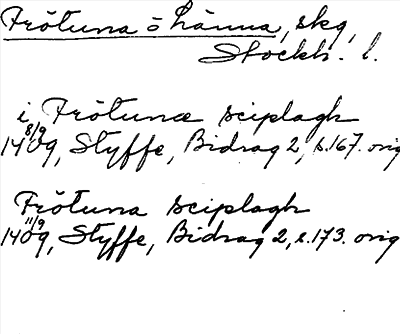 Frötuna o Länna, skg,
Stockh. l.
i Frötunæ sciplagh
8/9
1409, Styffe, Bidrag 2, s.167. orig
Frötuna sciplagh
11/9
1409, Styffe, Bidrag 2, s.173. orig